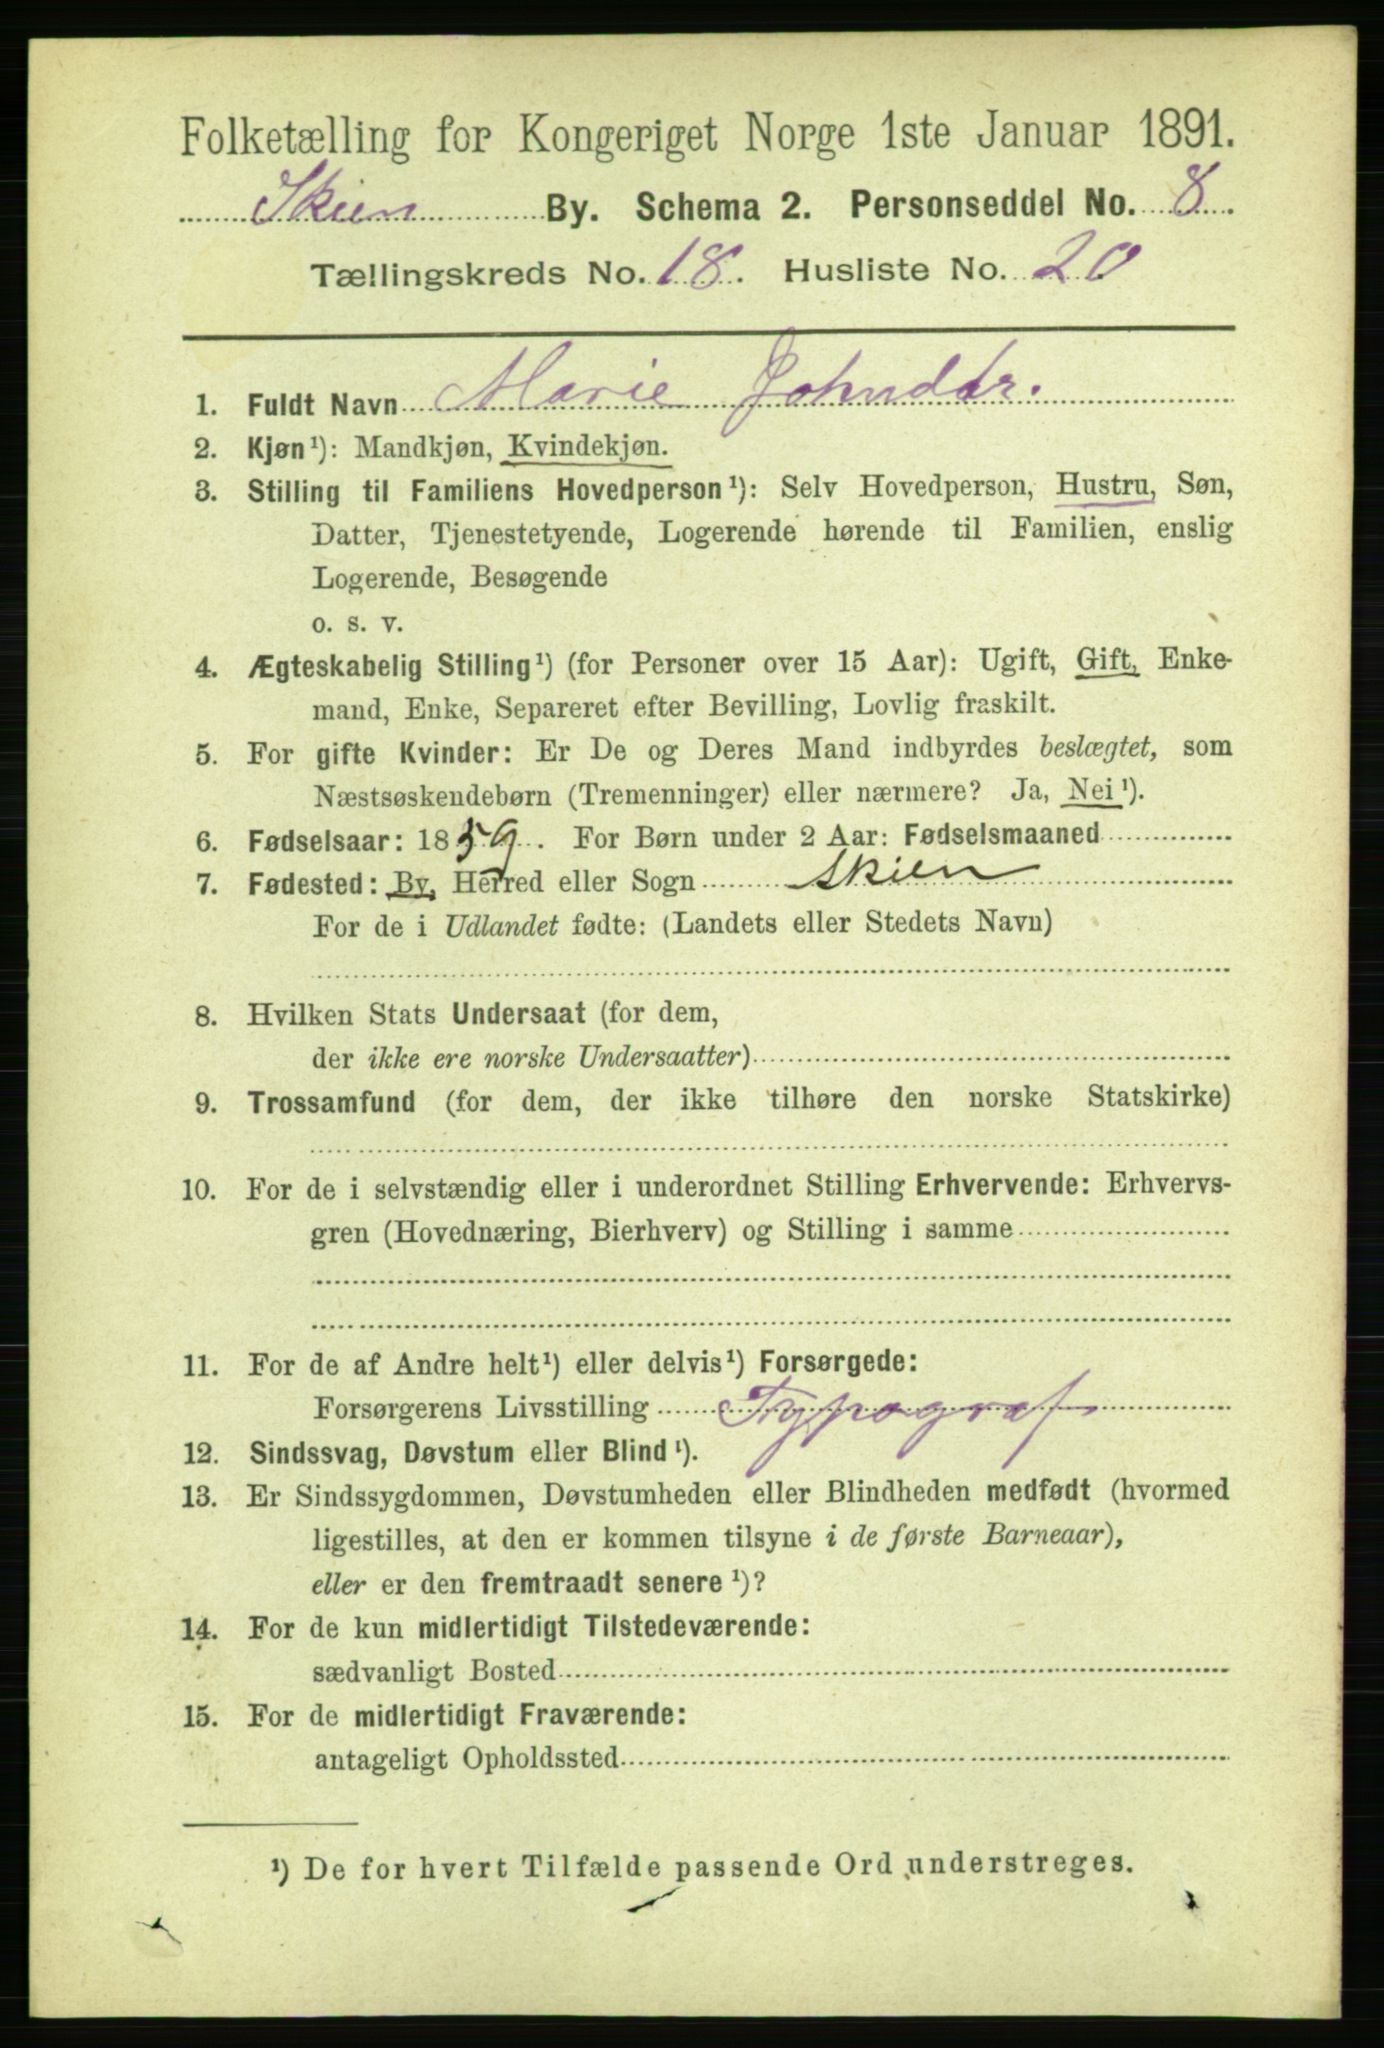 Folketælling for Kongeriget Norge 1ste Januar 1891.
Skien By. Schema 2. Personseddel No. 8.
Tællingskreds No. 18. Husliste No. 20
1. Fuldt Navn Marie Johnsdtr.
2. Kjøn¹): Mandkjøn, Kvindekjøn.
3. Stilling til Familiens Hovedperson¹): Selv Hovedperson, Hustru, Søn,
Datter, Tjenestetyende, Logerende hørende til Familien, enslig
Logerende, Besøgende
o. s. v.
4. Ægteskabelig Stilling¹) (for Personer over 15 Aar): Ugift, Gift, Enke-
mand, Enke, Separeret efter Bevilling, Lovlig fraskilt.
5. For gifte Kvinder: Er De og Deres Mand indbyrdes beslægtet, som
Næstsøskendebørn (Tremenninger) eller nærmere? Ja, Nei¹).
6. Fødselsaar: 1859. For Børn under 2 Aar: Fødselsmaaned
7. Fødested: By, Herred eller Sogn Skien
For de i Udlandet fødte: (Landets eller Stedets Navn)
8. Hvilken Stats Undersaat (for dem,
der ikke ere norske Undersaatter)
9. Trossamfund (for dem, der ikke tilhøre den norske Statskirke)
10. For de i selvstændig eller i underordnet Stilling Erhvervende: Erhvervs-
gren (Hovednæring, Bierhverv) og Stilling i samme
11. For de af Andre helt¹) eller delvis¹) Forsørgede:
Forsørgerens Livsstilling Typograf
12. Sindssvag, Døvstum eller Blind¹).
13. Er Sindssygdommen, Døvstumheden eller Blindheden medfødt (hvormed
ligestilles, at den er kommen tilsyne i de første Barneaar),
eller er den fremtraadt senere¹)?
14. For de kun midlertidigt Tilstedeværende:
sædvanligt Bosted
15. For de midlertidigt Fraværende:
antageligt Opholdssted
¹) De for hvert Tilfælde passende Ord understreges.